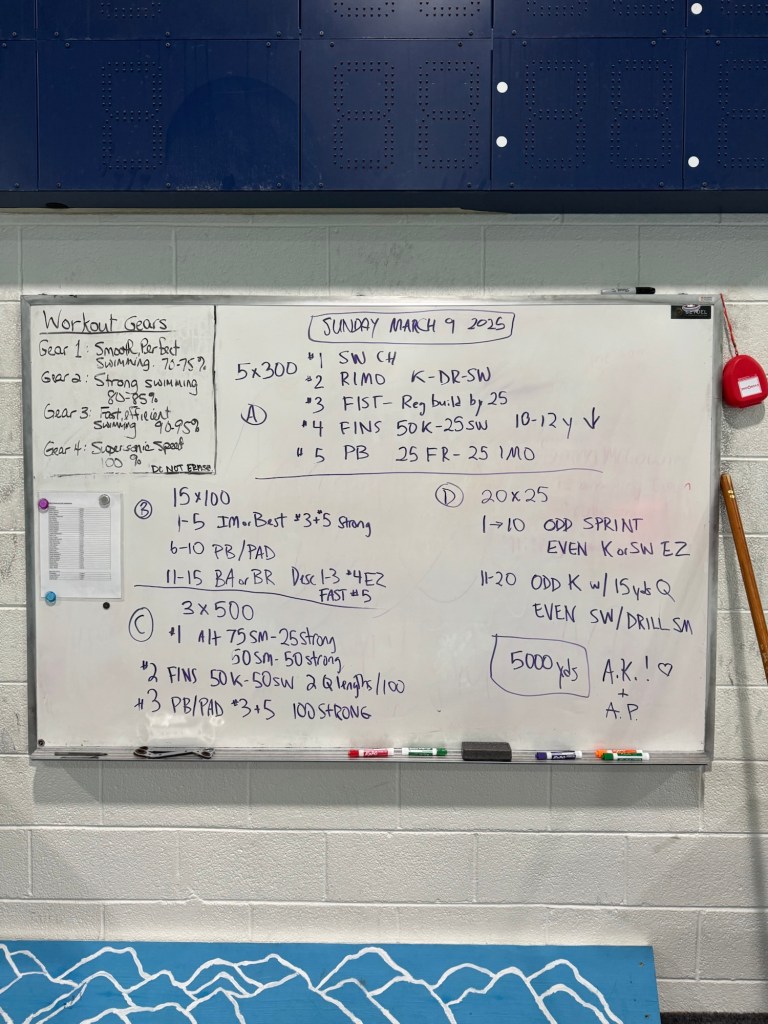 Workout Gears
Gear 1: Smooth, Perfect
Swimming. 70-75%
Gear 2: Strong swimming
80-85%
Gear 3: Fast, efficient
swimming 90-95%
Gear 4: Supersonic Speed
100 %
DO NOT ERASE
SUNDAY MARCH 9 2025
5x300
A
#1 SW CH
#2 RIMO K-DR-SW
#3 FIST- Reg build by 25
#4 FINS 50K-25SW 10-12y ↓
#5 PB 25 FR- 25 IMO
B 15x100
1-5 IM or Best #3+5 Strong
6-10 PB/PAD
11-15 BA or BR Desc 1-3 #4 EZ
FAST #5
C 3x500
#1 Alt 75 SM-25 strong
50 SM-50 strong
#2 FINS 50K-50SW 2Q lengths/100
#3 PB/PAD #3+5 100 STRONG
D 20x25
1→10 ODD SPRINT
EVEN K or SW EZ
11-20 ODD K w/ 15yds Q
EVEN SW/DRILL SM
5000 yds
A.K.! ♡
+
A.P.